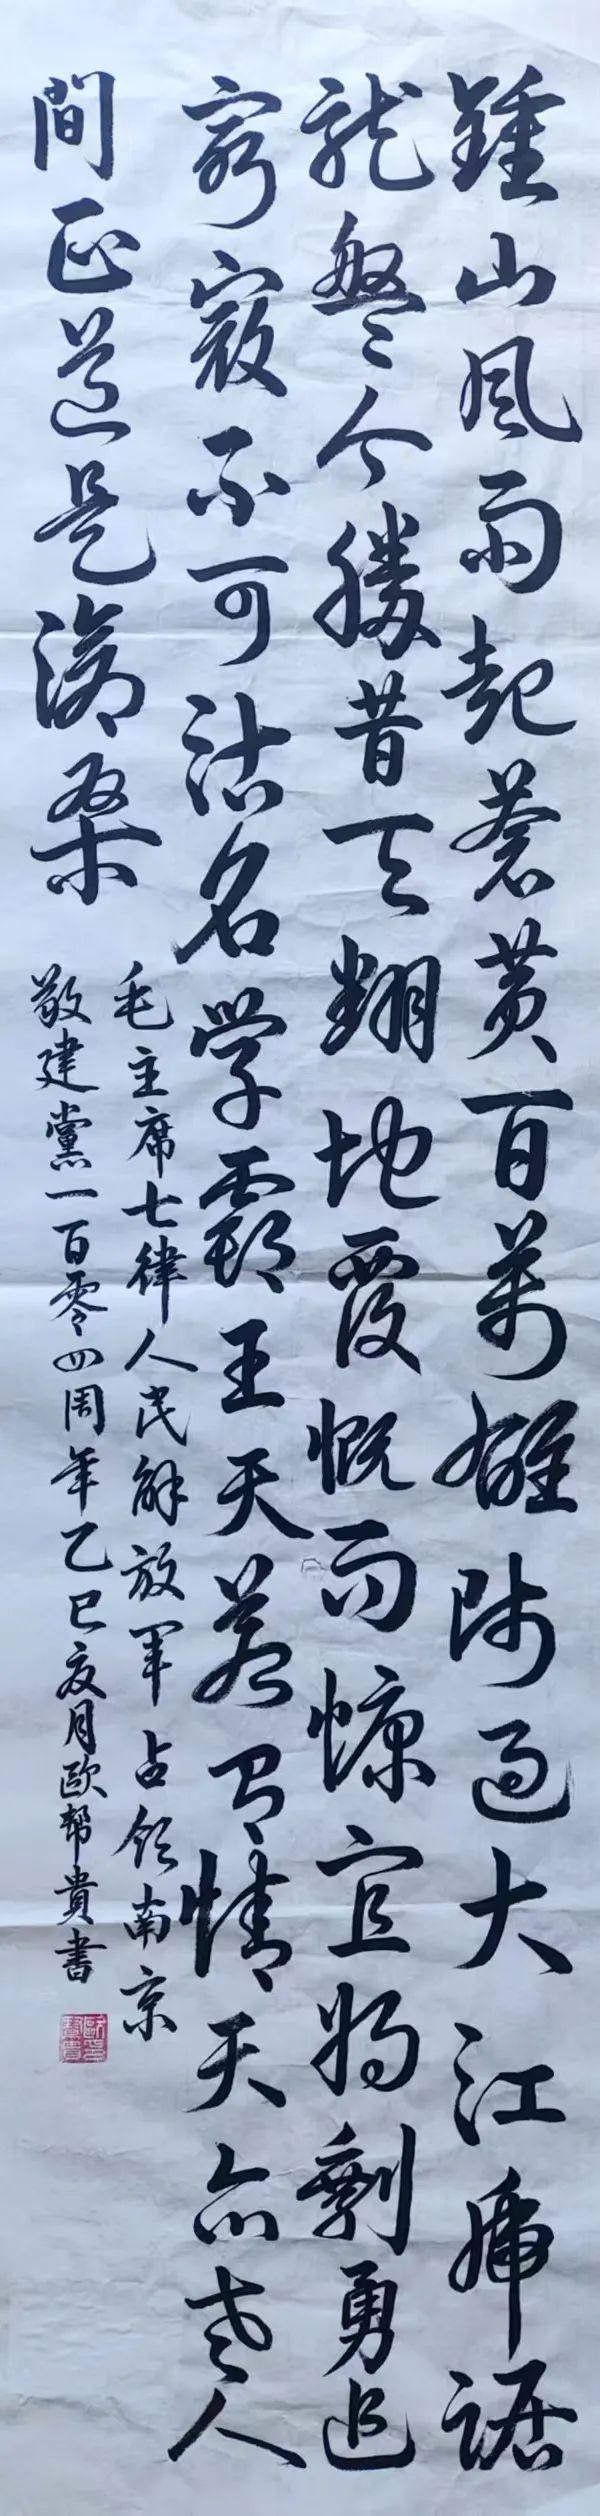 鍾山風雨起蒼黄百萬雄師過大江虎踞
龍盤今勝昔天翻地覆慨而慷宜將剩勇追
窮寇不可沽名學霸王天若有情天亦老人
間正道是滄桑
毛主席七律人民解放軍占領南京
敬建黨一百零四周年乙巳夜月歐幫貴書